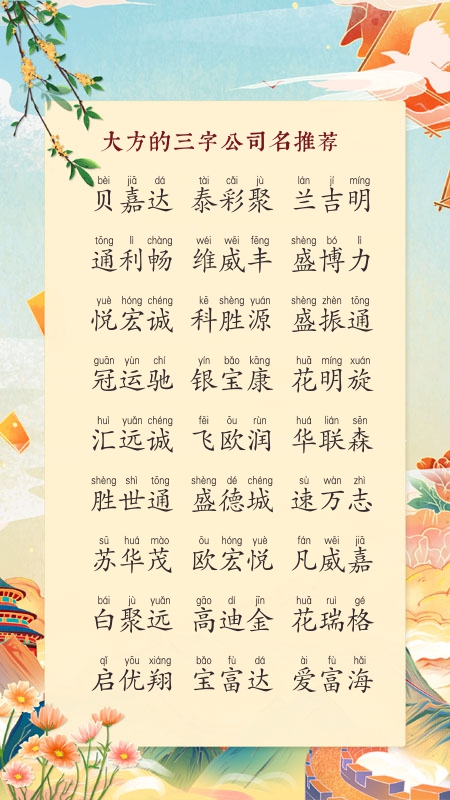 大方的三字公司名推荐
bèi jiā dá tài cǎi jù lán jí míng
贝嘉达 泰彩聚 兰吉明
tōng lì chàng wéi wēi fēng shèng bó lì
通利畅 维威丰 盛博力
yuè hóng chéng kē shèng yuán shèng zhèn tōng
悦宏诚 科胜源 盛振通
guān yùn chí yín bǎo kāng huā míng xuán
冠运驰 银宝康 花明旋
huì yuǎn chéng fēi ōu rùn huá lián sēn
汇远诚 飞欧润 华联森
shèng shì tōng shèng dé chéng sù wàn zhì
胜世通 盛德城 速万志
sū huá mào ōu hóng yuè fán wēi jiā
苏华茂 欧宏悦 凡威嘉
bái jù yuǎn gāo dí jīn huā ruì gé
白聚远 高迪金 花瑞格
qǐ yōu xiáng bǎo fù dá ài fù hǎi
启优翔 宝富达 爱富海